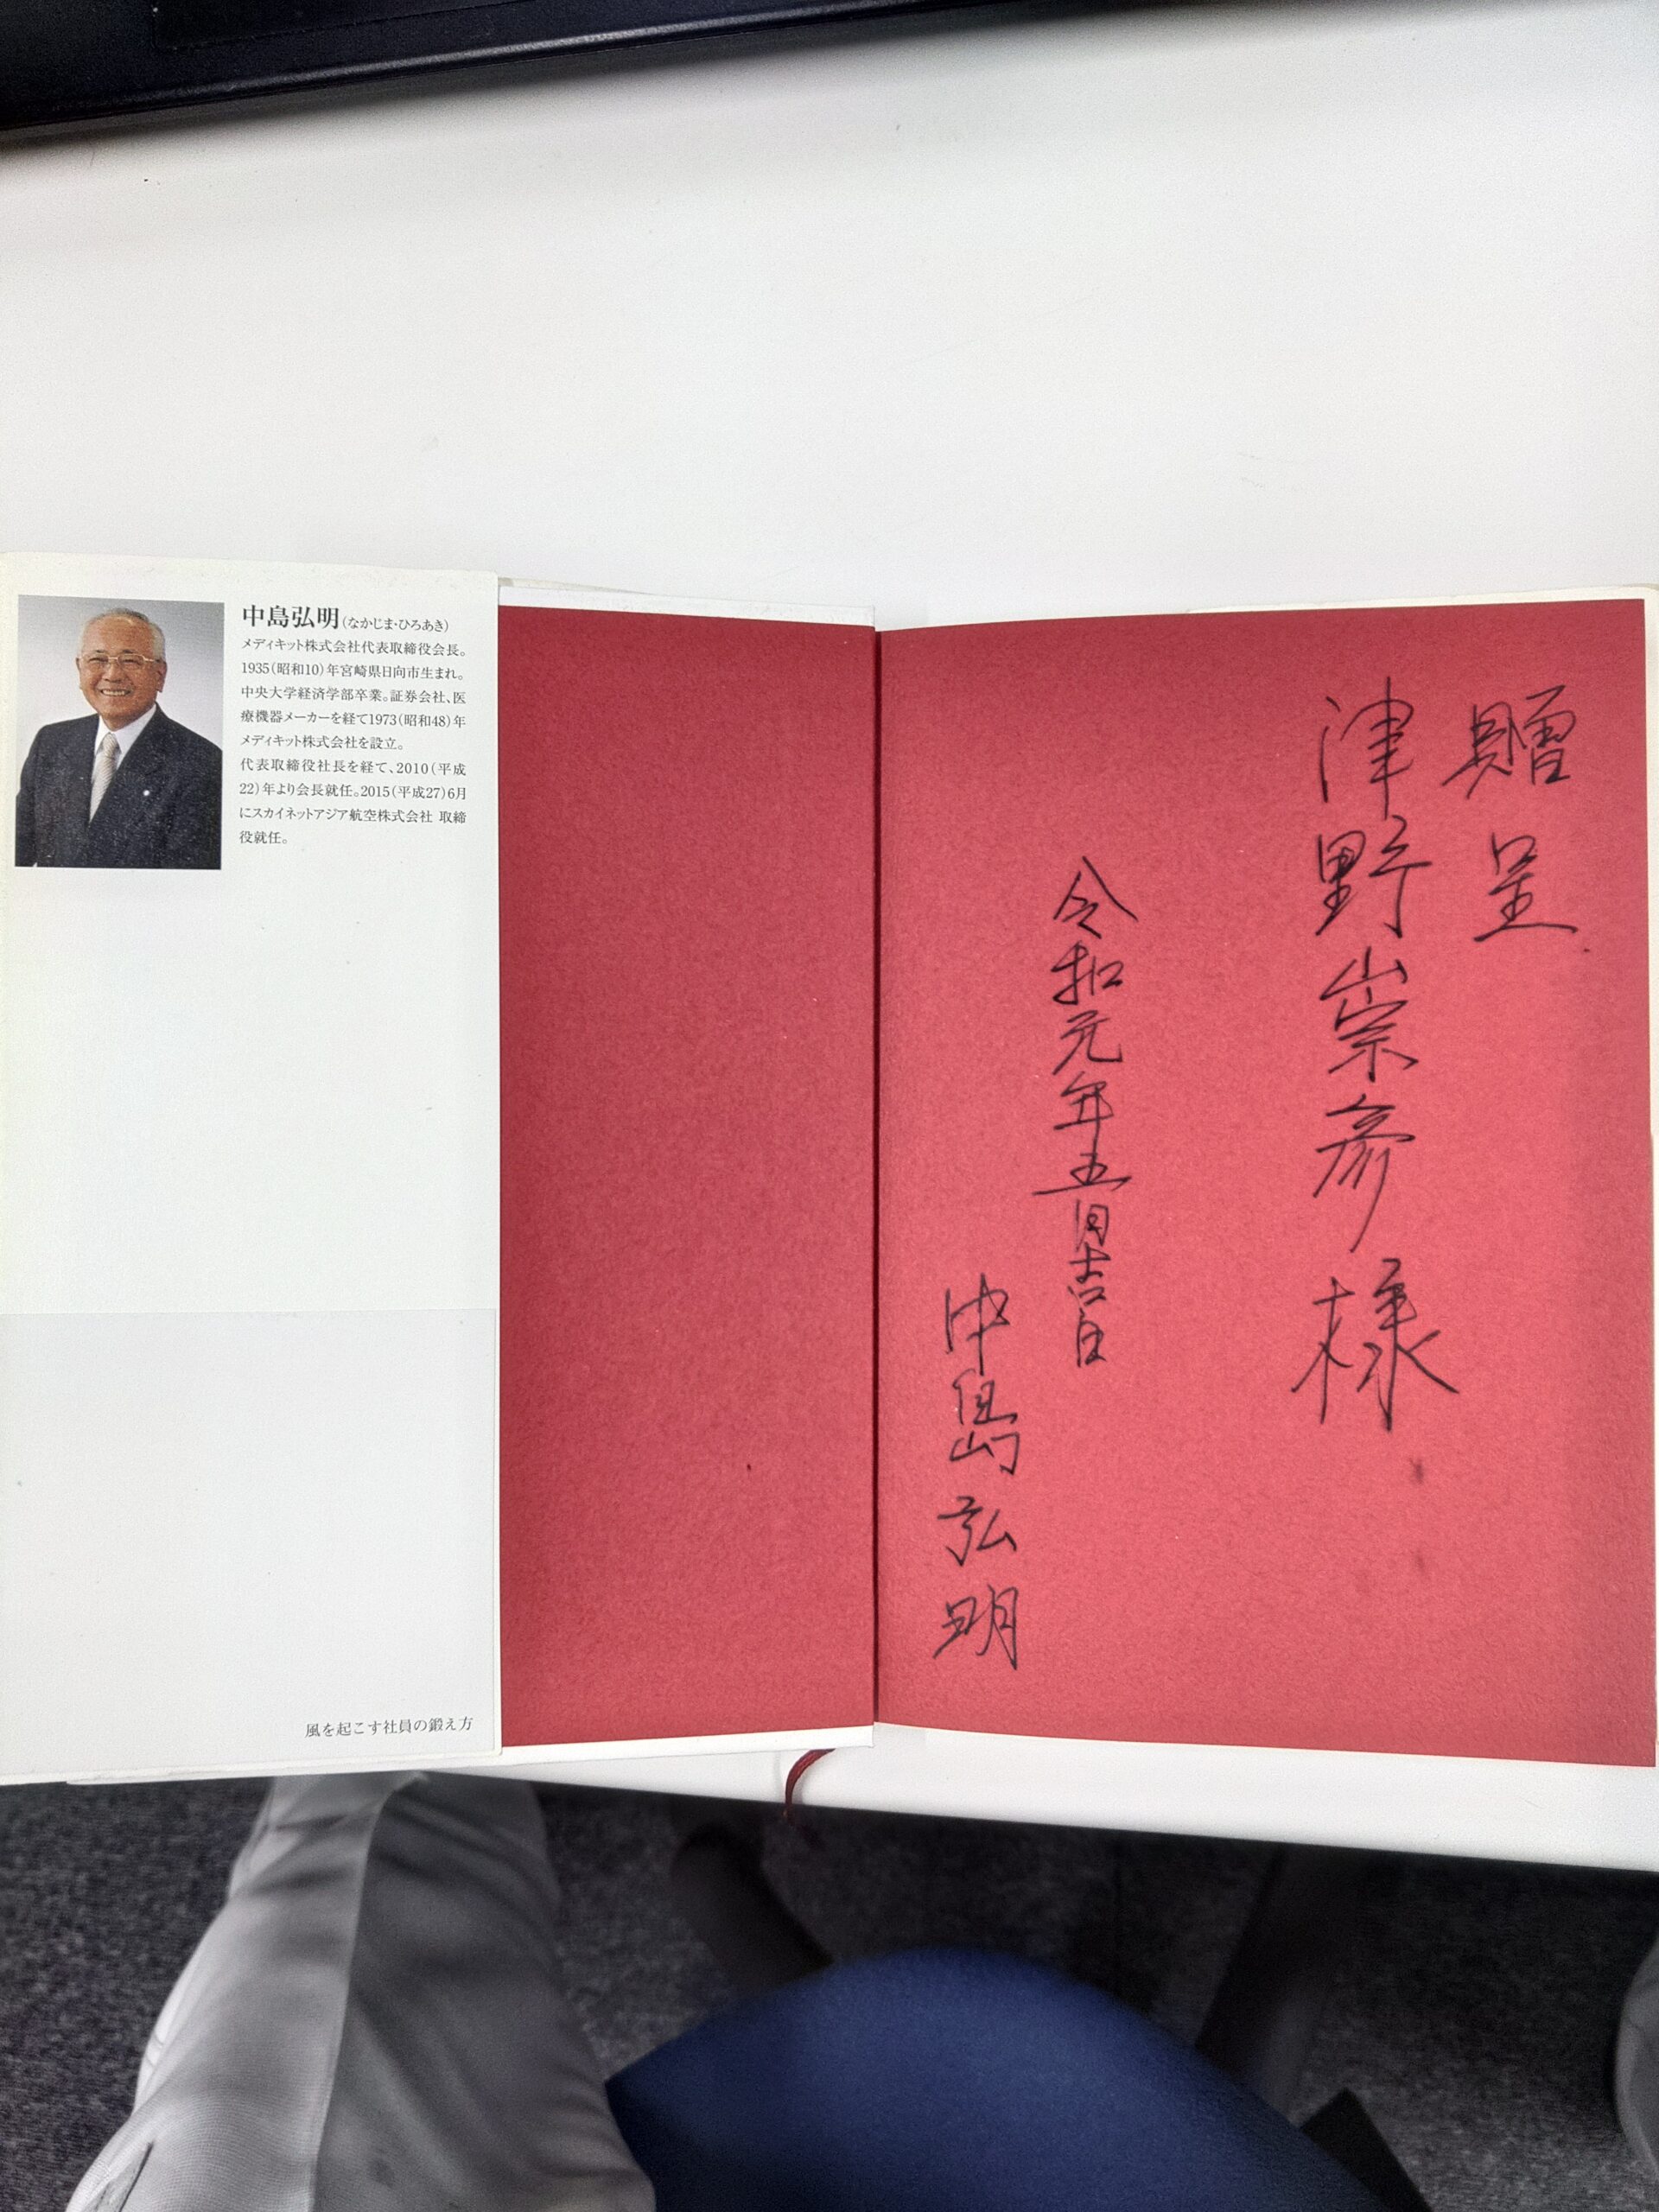 中島弘明(なかじま・ひろあき)
メディキット株式会社代表取締役会長。
1935(昭和10)年宮崎県日向市生まれ。
中央大学経済学部卒業。証券会社、医
療機器メーカーを経て1973(昭和48)年
メディキット株式会社を設立。
代表取締役社長を経て、2010(平成
22)年より会長就任。2015(平成27)6月
にスカイネットアジア航空株式会社 取締
役就任。
風を起こす社員の鍛え方
贈呈
津野崇彦様
令和元年五月吉日
中島弘明